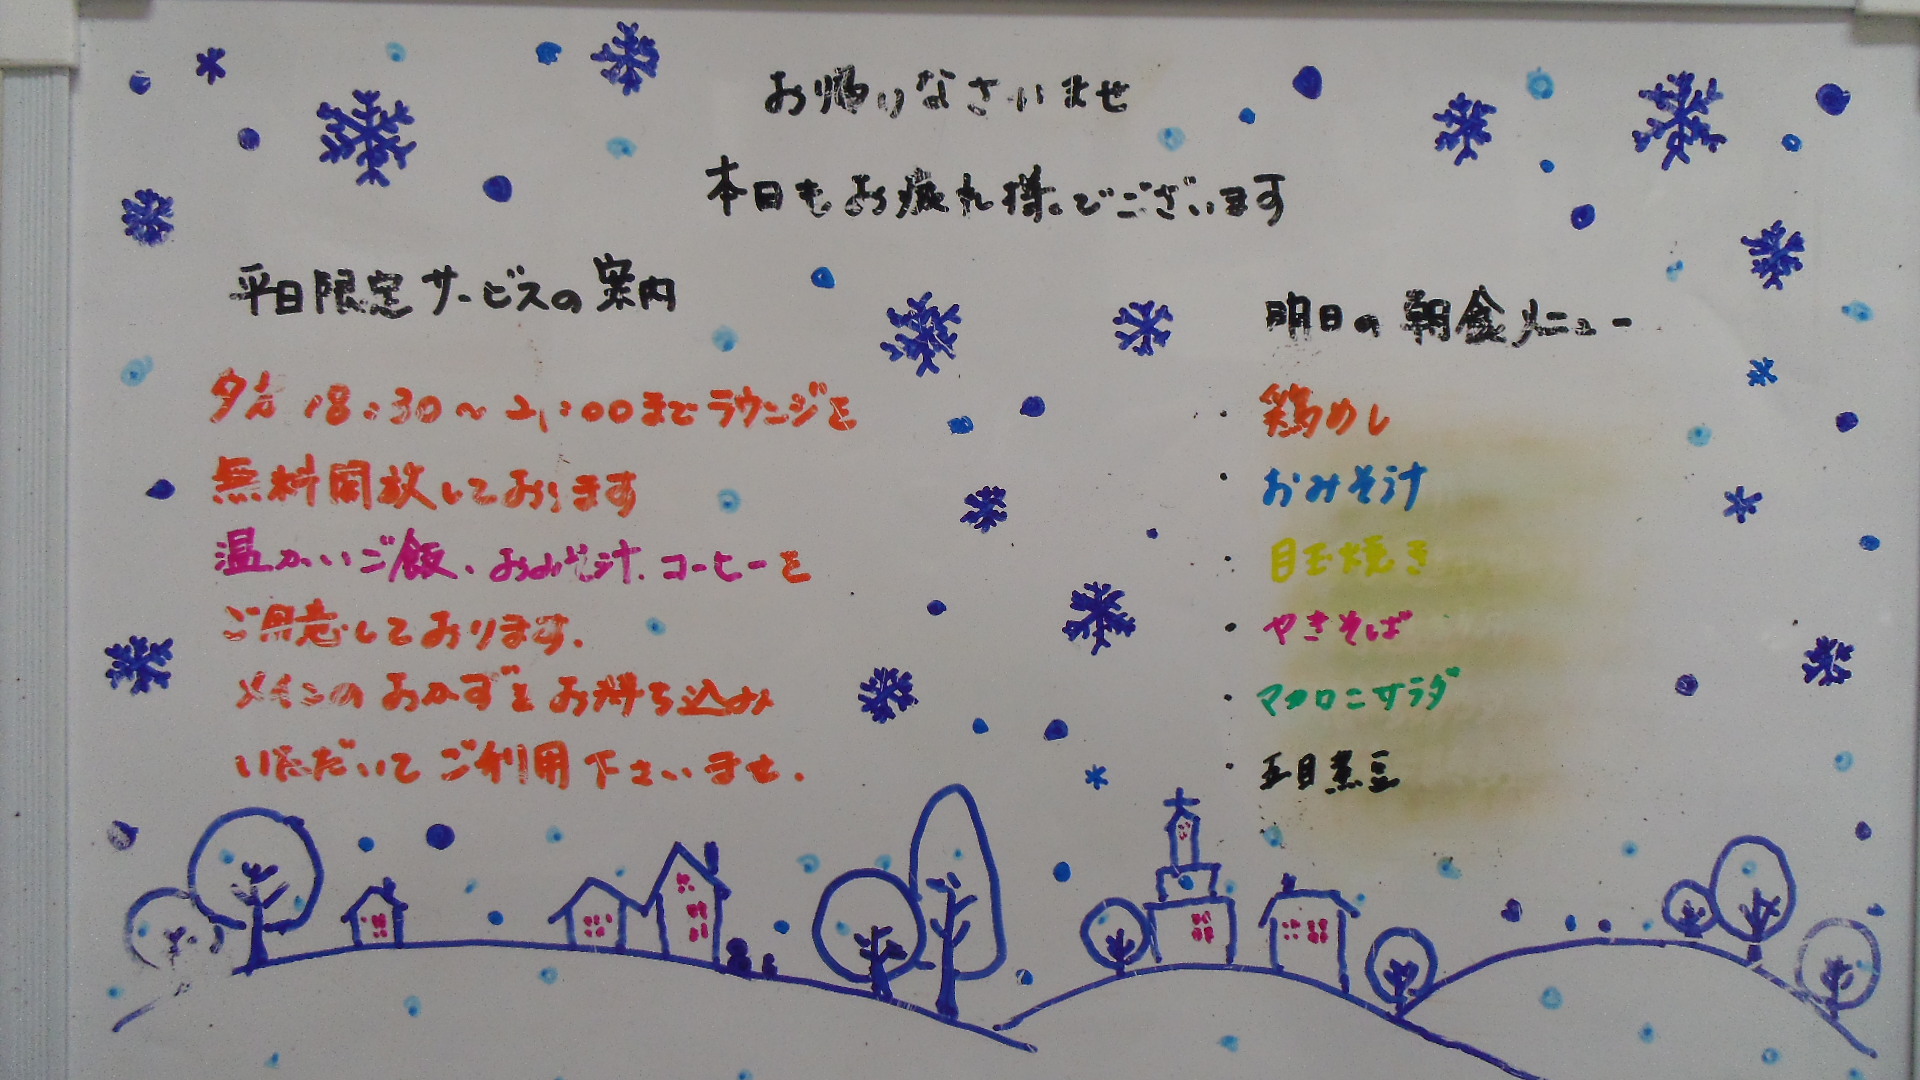 お帰りなさいませ
本日もお疲れ様でございます
平日限定サービスの案内
夕方 18:30～21:00までラウンジを
無料開放しております
温かいご飯、おみそ汁、コーヒーを
ご用意しております.
メインのおかずをお持ち込み
いただいてご利用下さいませ.
明日の朝食メニュー
・鶏めし
・おみそ汁
・目玉焼き
・やきそば
・マカロニサラダ
・五目煮豆